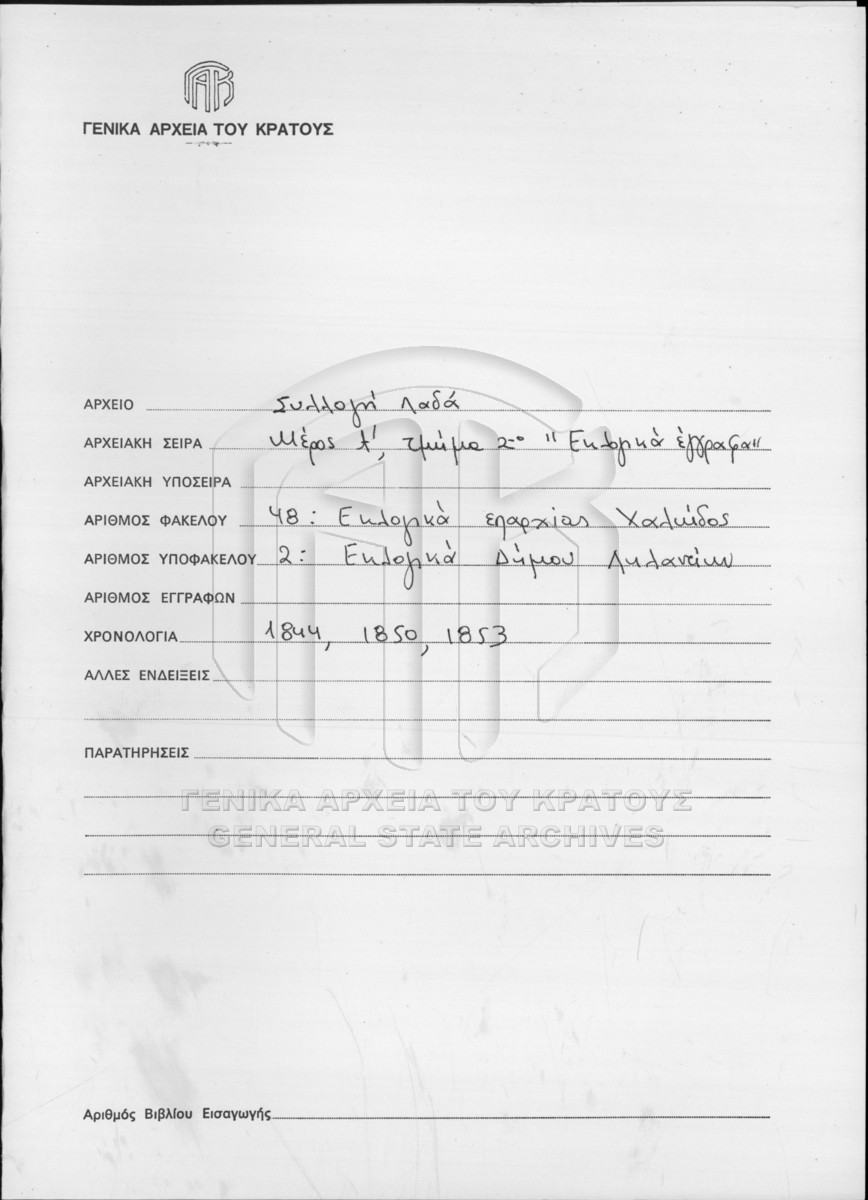 ΓΑΚ
ΓΕΝΙΚΑ ΑΡΧΕΙΑ ΤΟΥ ΚΡΑΤΟΥΣ
ΑΡΧΕΙΟ Συλλογή Λαδά
ΑΡΧΕΙΑΚΗ ΣΕΙΡΑ Μέρος Α', τμήμα 2ο "Εκλογικά έγγραφα"
ΑΡΧΕΙΑΚΗ ΥΠΟΣΕΙΡΑ
ΑΡΙΘΜΟΣ ΦΑΚΕΛΟΥ 48: Εκλογικά επαρχίας Χαλκίδος
ΑΡΙΘΜΟΣ ΥΠΟΦΑΚΕΛΟΥ 2: Εκλογικά Δήμου Ληλαντίων
ΑΡΙΘΜΟΣ ΕΓΓΡΑΦΩΝ
ΧΡΟΝΟΛΟΓΙΑ 1844, 1850, 1853
ΑΛΛΕΣ ΕΝΔΕΙΞΕΙΣ
ΠΑΡΑΤΗΡΗΣΕΙΣ
ΓΕΝΙΚΑ ΑΡΧΕΙΑ ΤΟΥ ΚΡΑΤΟΥΣ
GENERAL STATE ARCHIVES
Αριθμός Βιβλίου Εισαγωγής